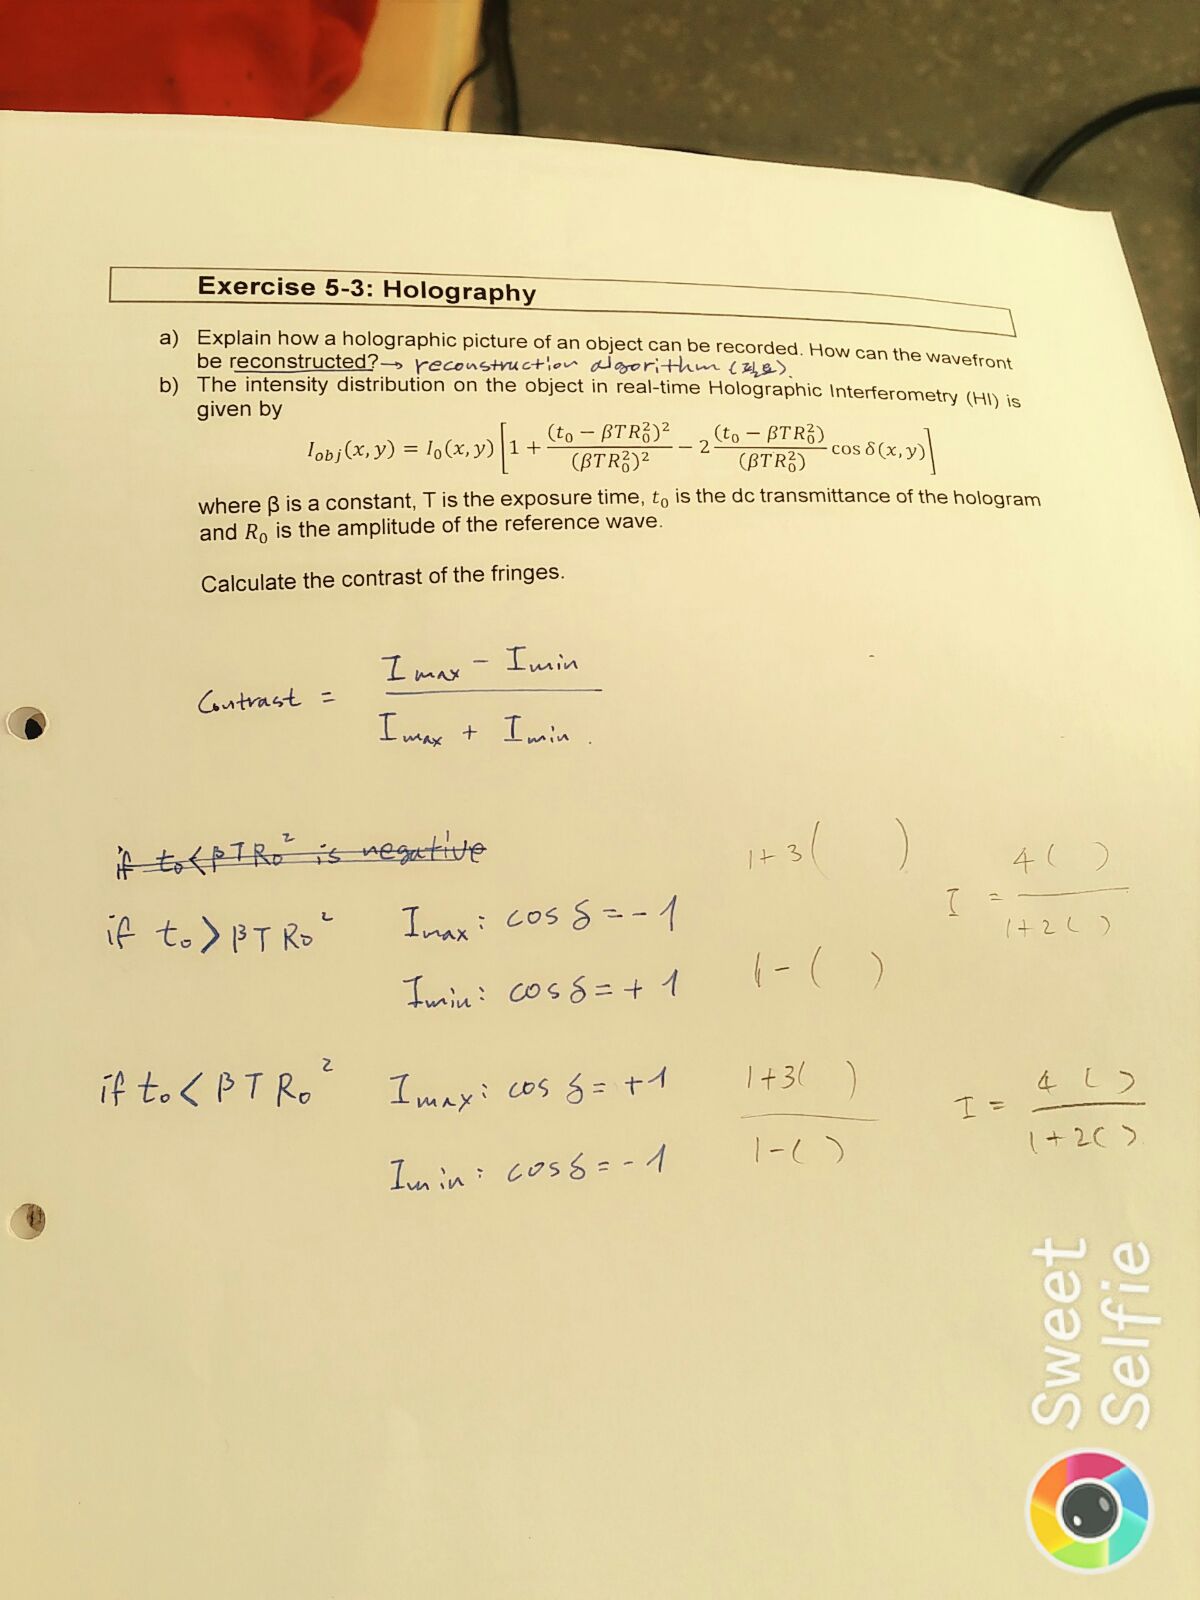 Exercise 5-3: Holography
a) Explain how a holographic picture of an object can be recorded. How can the wavefront
be reconstructed? → reconstruction algorithm (필요).
b) The intensity distribution on the object in real-time Holographic Interferometry (HI) is
given by
I_obj(x, y) = I_0(x, y) [1 + (t_0 − βTR_0^2)^2 / (βTR_0^2)^2 − 2 (t_0 − βTR_0^2) / (βTR_0^2) cos δ(x, y)]
where β is a constant, T is the exposure time, t_0 is the dc transmittance of the hologram
and R_0 is the amplitude of the reference wave.
Calculate the contrast of the fringes.
Contrast = (I max - I min) / (I max + I min).
if to < βTRo² is negative
if to > βTRo² Imax : cos δ = -1 1+3( )
Imin : cos δ = +1 1-( )
I = 4( ) / 1+2( )
if to < βTRo² Imax : cos δ = +1 1+3( )
Imin : cos δ = -1 1-( )
I = 4( ) / 1+2( )
Sweet
Selfie